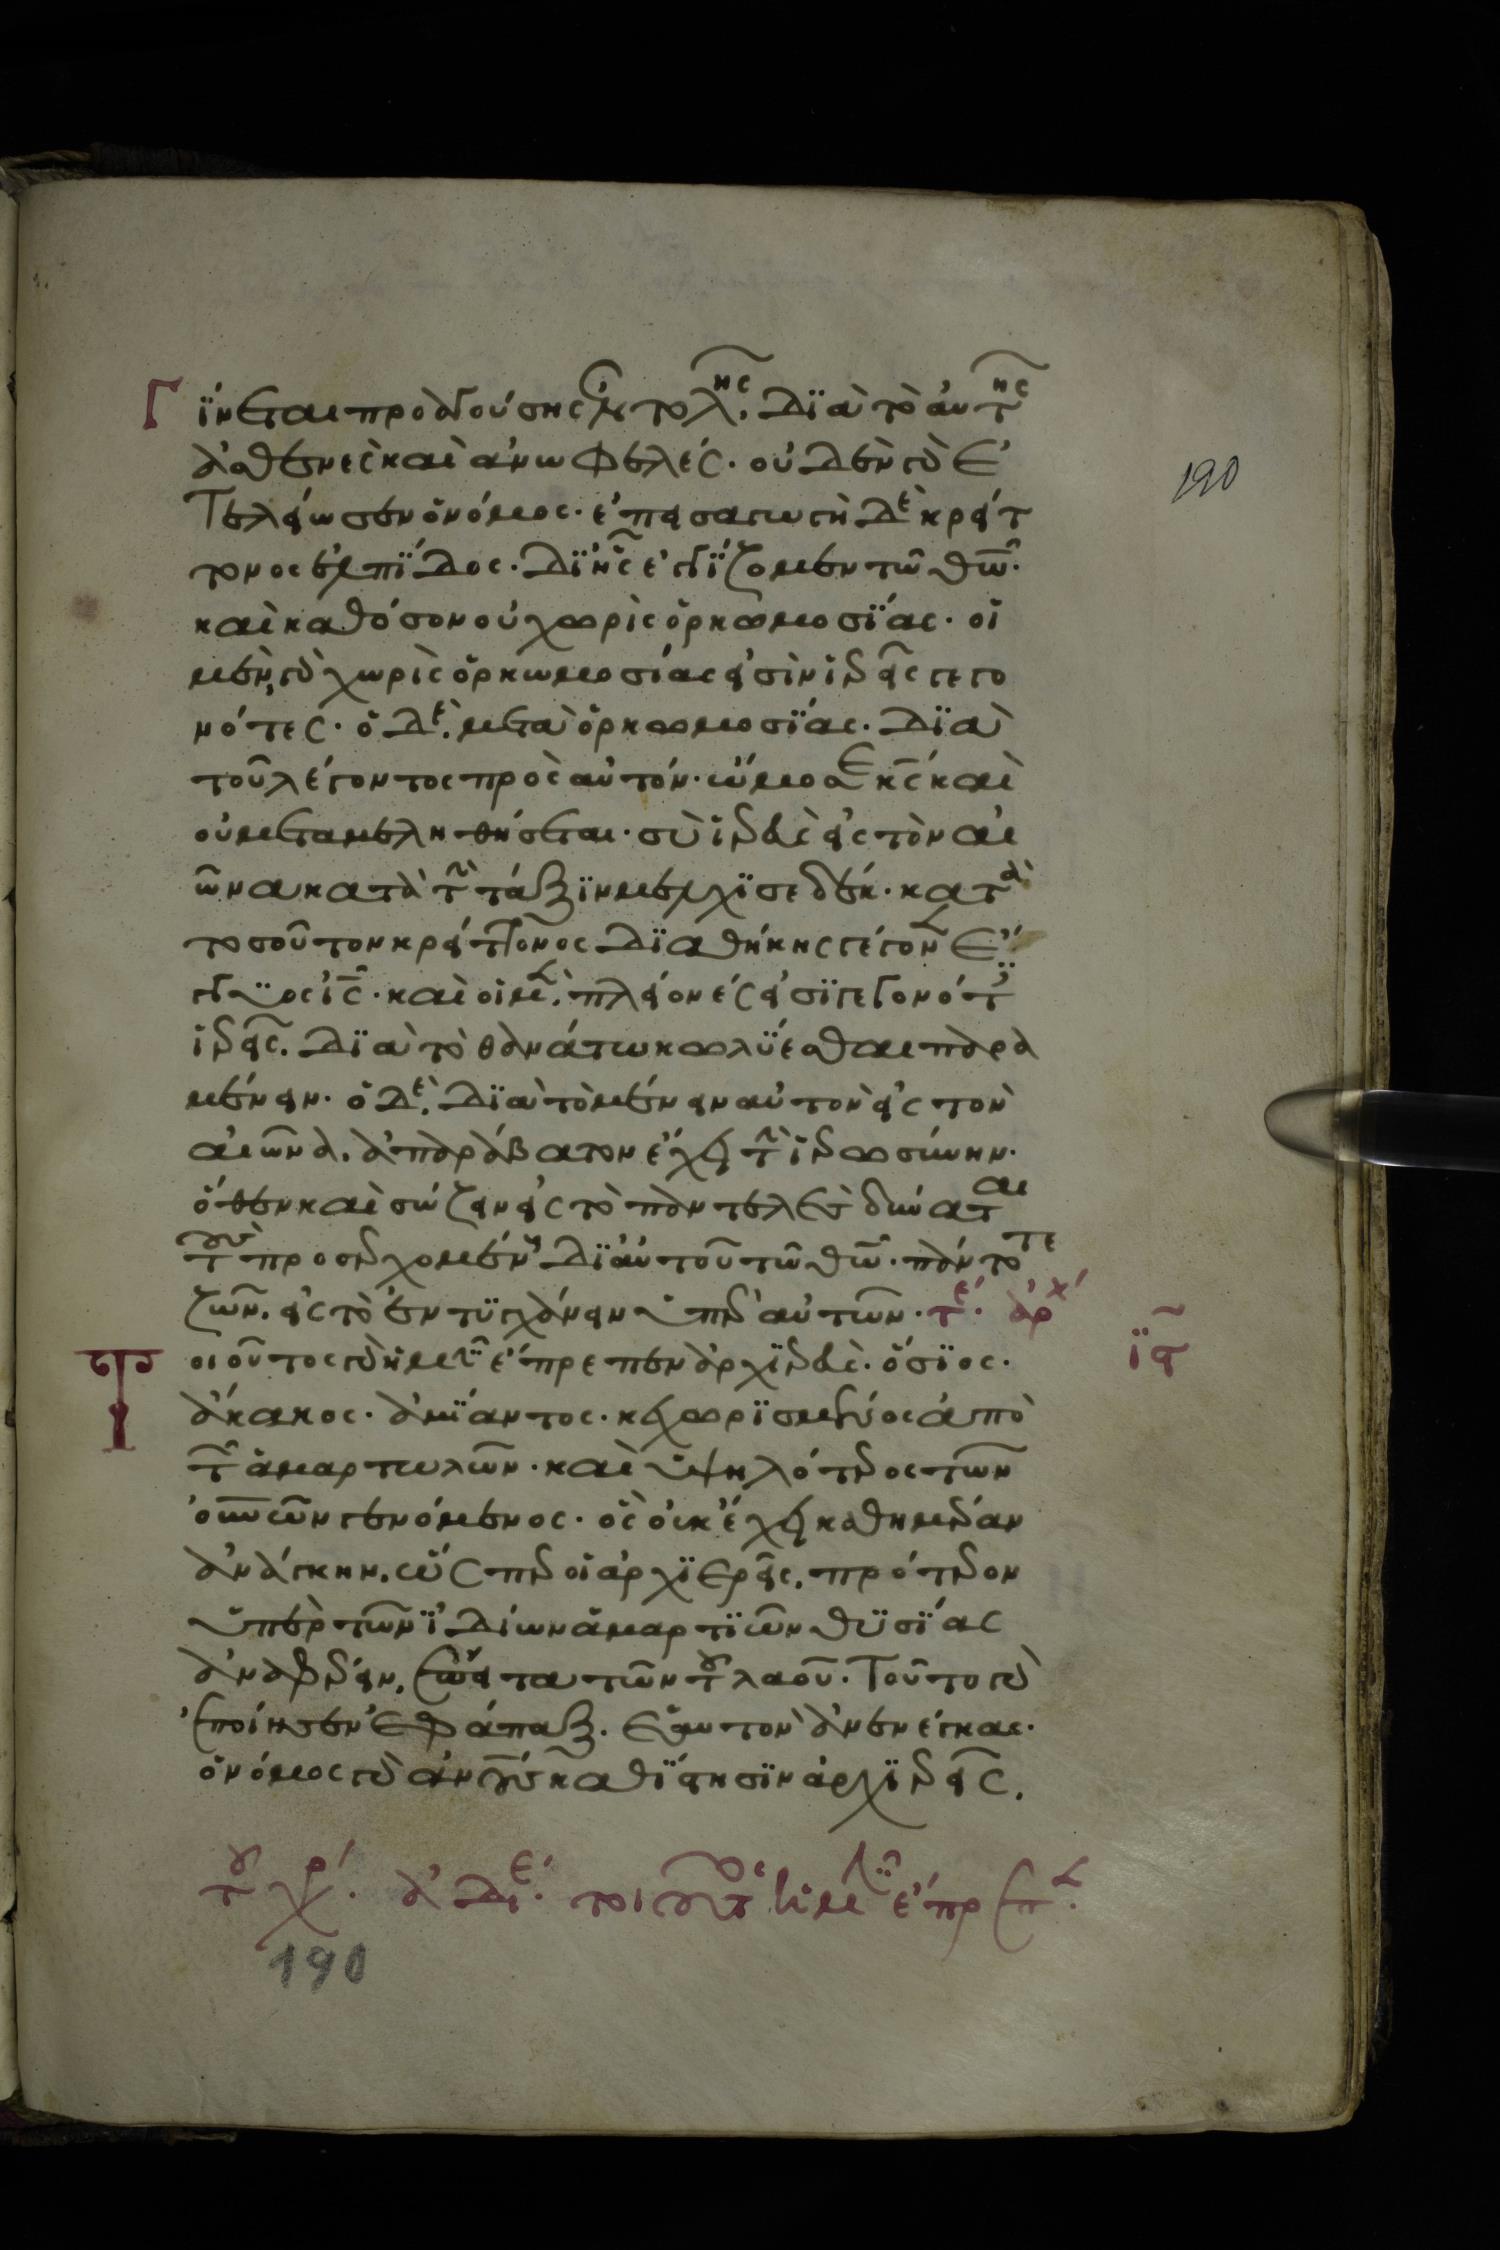 Γίνεται προαγούσης ἐντολῆς. διὰ τὸ αὐτῆς
ἀσθενὲς καὶ ἀνωφελές· οὐδὲν γὰρ ἐ
τελείωσεν ὁ νόμος· ἐπεισαγωγὴ δὲ κρείτ
τονος ἐλπίδος. δι' ἧς ἐγγίζομεν τῶ θῶ·
καὶ καθόσον οὐ χωρὶς ὁρκωμοσίας· οἱ
μὲν γὰρ χωρὶς ὁρκωμοσίας εἰσὶν ἱερεῖς γεγο
νότες· ὁ δὲ μετὰ ὁρκωμοσίας. διὰ
τοῦ λέγοντος πρὸς αὐτόν· ὤμοσε κς καὶ
οὐ μεταμεληθήσεται· σὺ ἱερεὺς εἰς τὸν αἰ
ῶνα κατὰ τὴν τάξιν μελχισεδέκ· κατὰ
τοσοῦτον κρείττονος διαθήκης γέγονεν ἔγ
γυος ις· καὶ οἱ μὲν πλείονές εἰσι γεγονότες
ἱερεῖς. διὰ τὸ θανάτω κωλύεσθαι παρα
μένειν· ὁ δὲ διὰ τὸ μένειν αὐτὸν εἰς τὸν
αἰῶνα. ἀπαράβατον ἔχει τὴν ἱερωσύνην·
ὅθεν καὶ σώζειν εἰς τὸ παντελὲς δύναται
τοὺς προσερχομένους δι' αὐτοῦ τῶ θῶ· πάντοτε
ζῶν. εἰς τὸ ἐντυγχάνειν ὑπὲρ αὐτῶν· τέ. ἀρχ
Τοιοῦτος γὰρ ἡμῖν ἔπρεπεν ἀρχιερεύς· ὅσιος·
ἄκακος· ἀμίαντος· κεχωρισμένος ἀπὸ
τῶν ἁμαρτωλῶν· καὶ ὑψηλότερος τῶν
οὐνῶν γενόμενος· ὃς οὐκ ἔχει καθημέραν
ἀνάγκην. ὥσπερ οἱ ἀρχιερεῖς. πρότερον
ὑπὲρ τῶν ἰδίων ἁμαρτιῶν θυσίας
ἀναφέρειν. ἔπειτα τῶν τοῦ λαοῦ. Τοῦτο γὰρ
ἐποίησεν ἐφάπαξ. ἑαυτὸν ἀνενέγκας·
ὁ νόμος γὰρ ἀνους καθίστησιν ἀρχιερεῖς.
190
ις
τοῦ χρ. ἀδε. τοιοῦτος ἡμῖν ἔπρεπεν
190